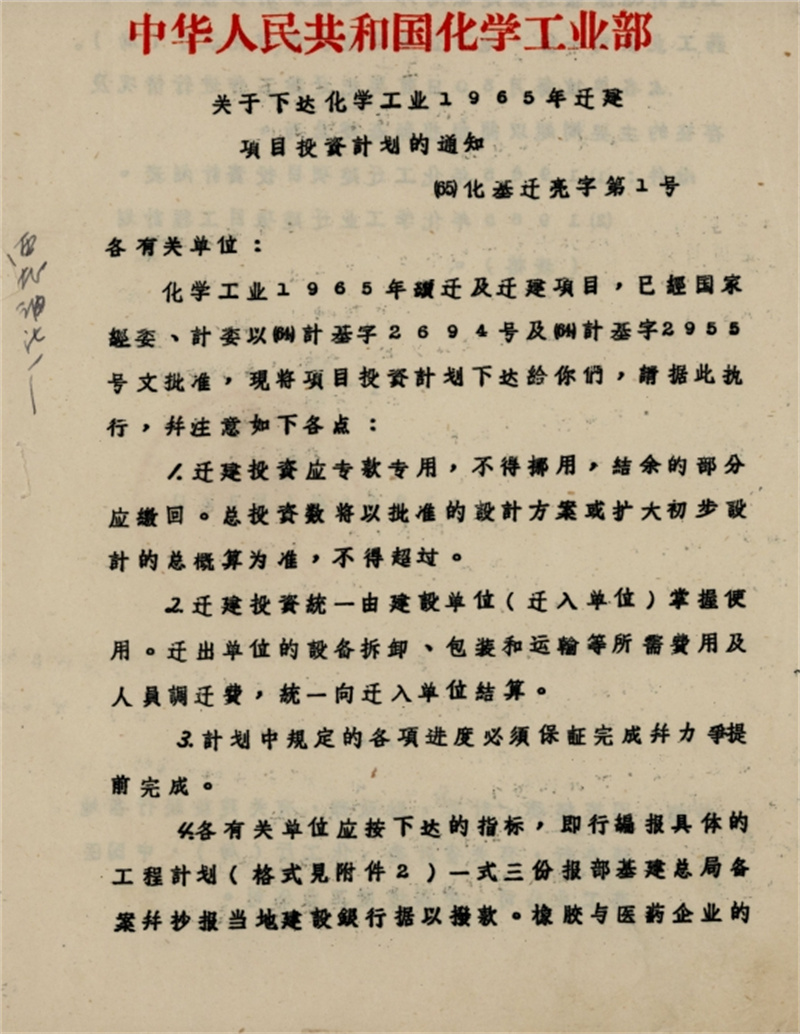 中华人民共和国化学工业部
关于下达化学工业1965年迁建
項目投資計划的通知
(65)化基迁亮字第1号
各有关单位：
化学工业1965年續迁及迁建項目，已經国家
經委、計委以(64)計基字2694号及(64)計基字2955
号文批准，現将項目投資計划下达給你們，請据此执
行，幷注意如下各点：
1.迁建投資应专款专用，不得挪用，結余的部分
应繳回。总投資数将以批准的設計方案或扩大初步設
計的总概算为准，不得超过。
2.迁建投資統一由建設单位（迁入单位）掌握使
用。迁出单位的設备拆卸、包装和运输等所需費用及
人員調迁費，統一向迁入单位結算。
3.計划中規定的各項进度必須保証完成幷力爭提
前完成。
4.各有关单位应按下达的指标，即行編报具体的
工程計划（格式見附件2）一式三份报部基建总局备
案幷抄报当地建設銀行据以撥款。橡胶与医药企业的